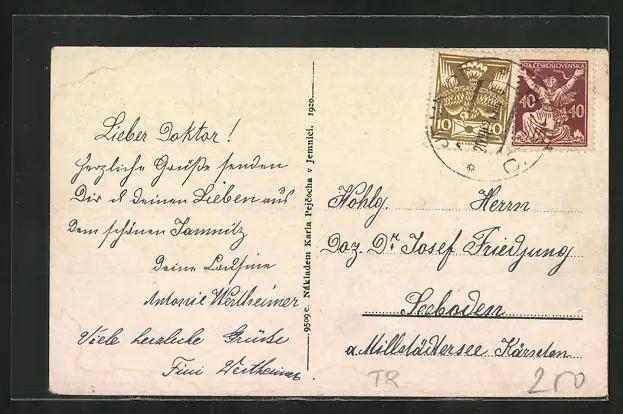 Lieber Doktor!
Herzliche Grüße senden
Dir & deinen Lieben aus
dem schönen Jamnitz
Deine Cousine
Antonie Wertheimer
Viele herzliche Grüße
Fini Wertheimer
9509 c. Nákladem Karla Pejčocha v Jemnici. 1920.
10 10
POŠTA ČESKOSLOVENSKÁ
40 40
Wohlg. Herrn
Doz. Dr. Josef Friedjung
Seeboden
a. Millstättersee Kärnten
TR 200